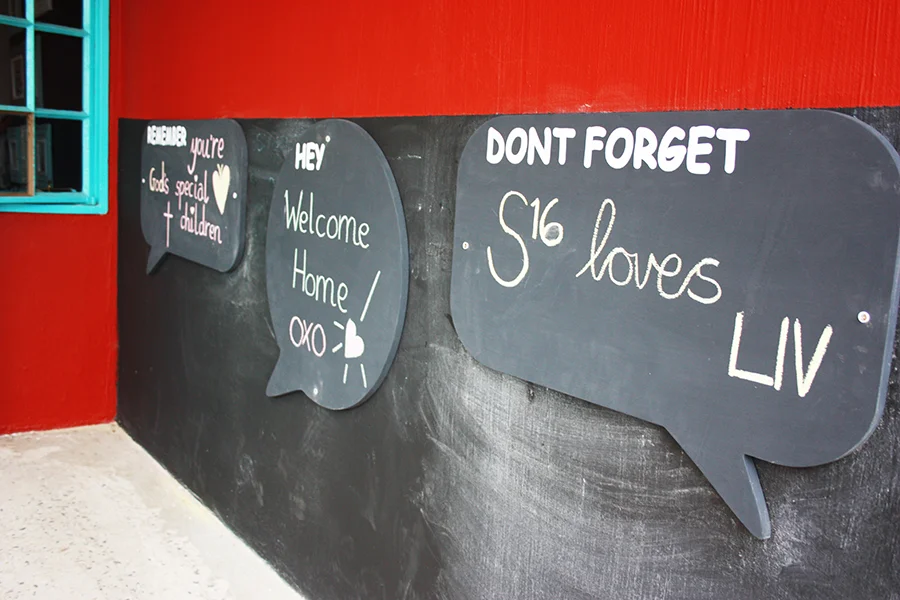 REMEMBER you're
God's special
children
HEY
Welcome
Home
OXO
DONT FORGET
S16 loves
LIV